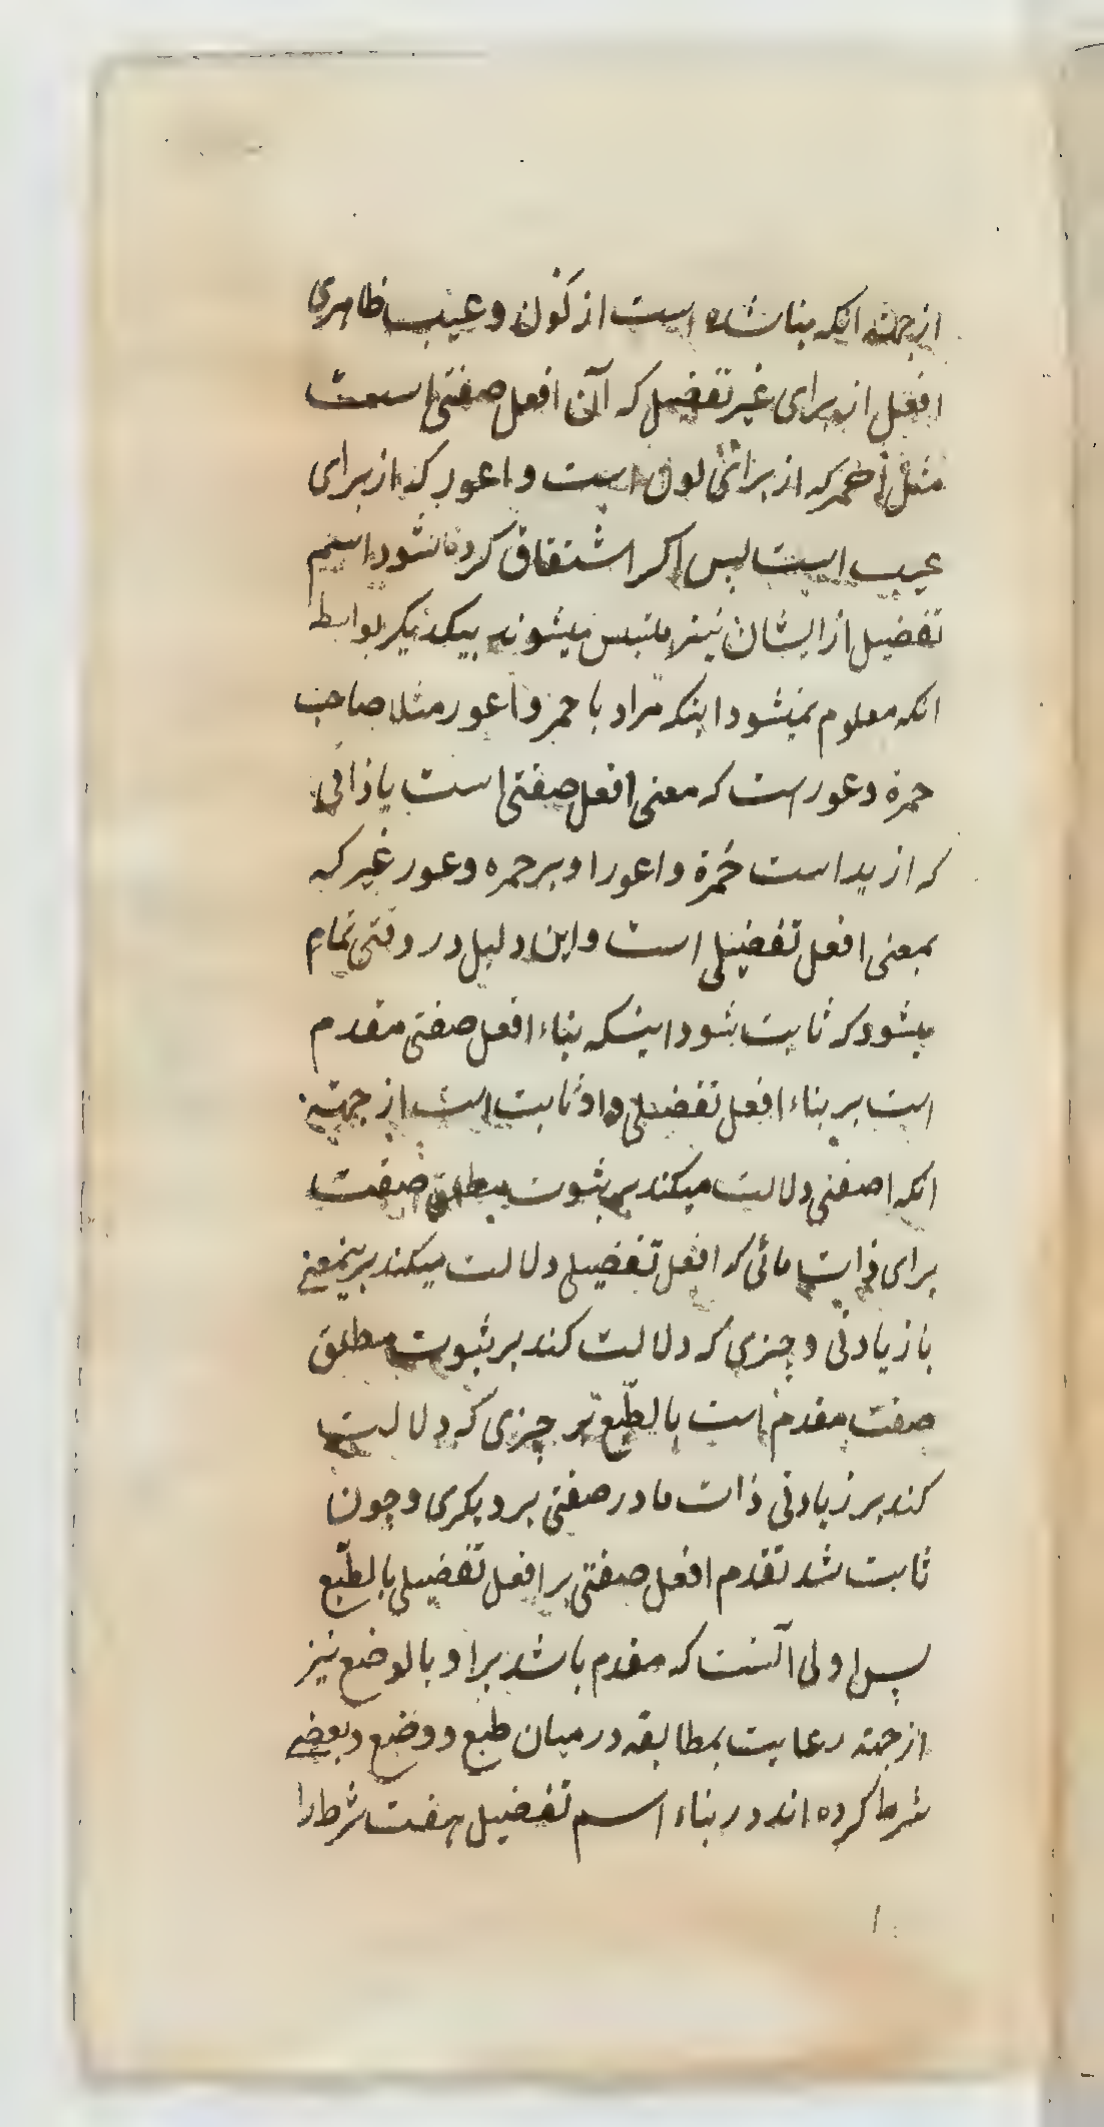 از جهته انکه بنا شده است از لون و عیب ظاهری
افعل از برای غیر تفضیل که آن افعل صفتی است
مثل احمر که از برای لون است و اعور که از برای
عیب است پس اکر اشتقاق کرده شود اسم
تفضیل از ایشان نیز ملتبس میشوند بیکدیکر بواسطه
انکه معلوم نمیشود اینکه مراد با حمر و اعور مثلا صاحب
حمرة و عور است که معنی افعل صفتی است یا ذاتی
که ازید است حُمرة و اعور او بر حمره و عور غیر که
بمعنی افعل تفضیلی است و این دلیل در وقتی تمام
میشود که ثابت شود اینکه بناء افعل صفتی مقدم
است بر بناء افعل تفضیلی و او ثابت است از جهته
انکه صفتی دلالت میکند بر ثبوت مطلق صفت
برای ذات مائی که افعل تفضیلی دلالت میکند برینمعنی
با زیادتی و چیزی که دلالت کند بر ثبوت مطلق
صفت مقدم است بالطّبع بر چیزی که دلالت
کند بر زیادتی ذات ما در صفتی بر دیکری و چون
ثابت شد تقدم افعل صفتی بر افعل تفضیلی بالطّبع
پس اولی آنست که مقدم باشد بر او بالوضع نیز
از جهته رعایت مطابقه در میان طبع و وضع و بعضی
شرط کرده اند در بناء اسم تفضیل هفت شرط را